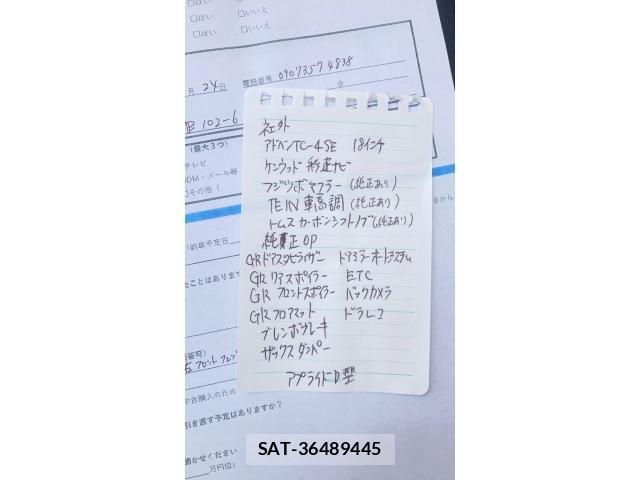 □はい □いいえ
□はい □いいえ
□はい □いいえ
月 24日 電話番号 09073574838
102-6
(最大3つ)
テレビ
DM・メール等
その他(
(納車予定日
るから
たことはありますか
フロント
中古購入のため
引き渡す予定はありますか?
聞かせください
万円位)
社外
アドバンTC-4SE 18インチ
ケンウッド 彩速ナビ
フジツボマフラー(純正あり)
TEIN 車高調(純正あり)
トムス カーボンシフトノブ(純正あり)
純正OP
GRドアスタビライザー ドアミラーオートシステム
GRリアスポイラー ETC
GRフロントスポイラー バックカメラ
GRフロアマット ドラレコ
ブレンボブレーキ
ザックスダンパー
アプライドD型
SAT-36489445